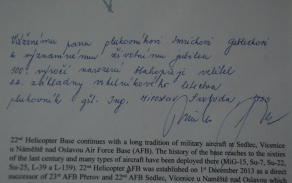 Váženému panu plukovníkovi
k významnému životnímu jubileu
100. výročí narození blahopřeje velitel
22. základny vrtulníkového letectva
plukovník gšt. Ing. Miroslav Svoboda
22nd Helicopter Base continues with a long tradition of military aircraft at Sedlec, Vicenice
u Náměště nad Oslavou Air Force Base (AFB). The history of the base reaches to the sixties
of the last century and many types of aircraft have been deployed there (MiG-15, Su-7, Su-22,
Su-25, L-39 a L-159). 22nd Helicopter AFB was established on 1st December 2013 as a direct
successor of 23rd AFB Přerov and 22nd AFB Sedlec, Vicenice u Náměště nad Oslavou.